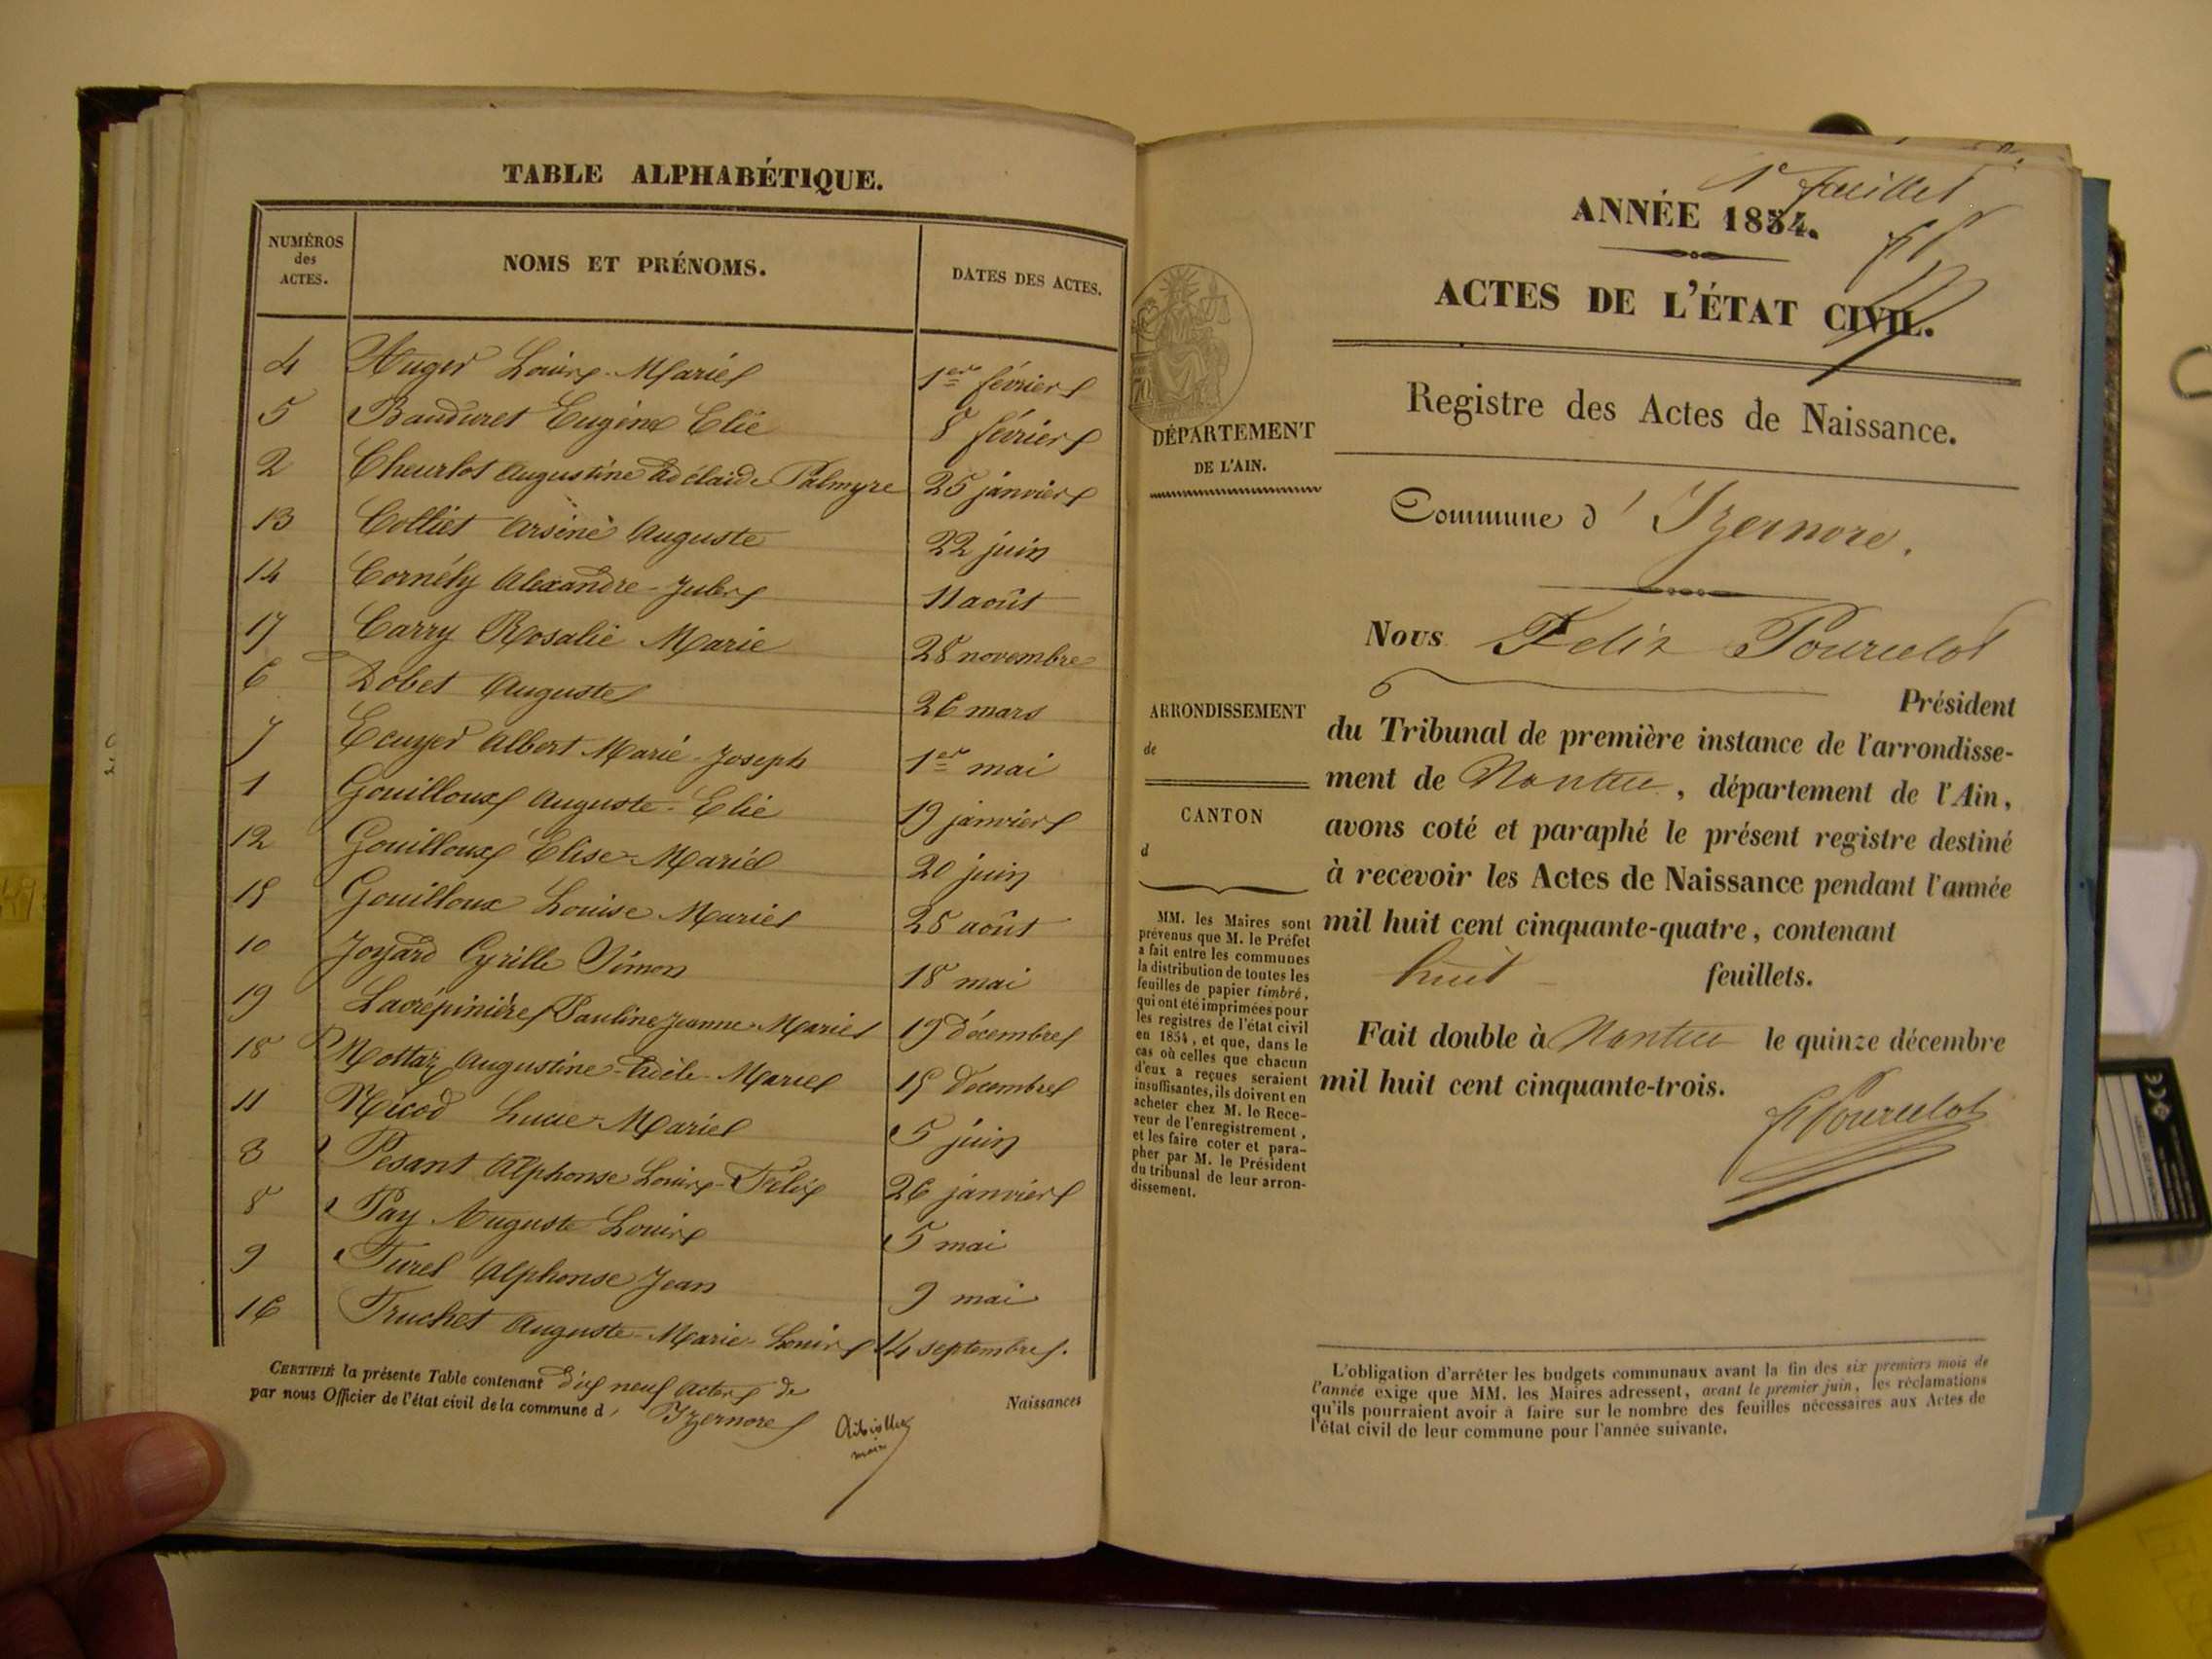 TABLE ALPHABÉTIQUE.
NUMÉROS
des
ACTES.
NOMS ET PRÉNOMS.
DATES DES ACTES.
4 Auger Louis-Marie 1er février
5 Bauduret Eugène Elie 8 février
2 Cheurlot Augustine Adélaïde Palmyre 25 janvier
13 Colliet Arsène Auguste 22 juin
14 Cornély Alexandre-Jules 11 août
17 Carry Rosalie Marie 28 novembre
6 Dobet Auguste 26 mars
7 Ecuyer Albert Marie-Joseph 1er mai
1 Gouilloux Auguste-Elie 19 janvier
12 Gouilloux Elise-Marie 20 juin
15 Gouilloux Louise Marie 28 août
10 Joyard Cyrille Simon 18 mai
19 Lacrépinière Pauline Jeanne-Marie 19 décembre
18 Mottaz Augustine-Adèle-Marie 15 décembre
11 Nicod Lucie-Marie 5 juin
3 Pesant Alphonse Louis-Félix 26 janvier
8 Pay Auguste-Louis 5 mai
9 Turel Alphonse Jean 9 mai
16 Truchet Auguste-Marie-Louis 14 septembre.
CERTIFIÉ la présente Table contenant dix neuf actes de Naissances
par nous Officier de l'état civil de la commune d' Izernore
maire
1e feuillet
ANNÉE 1854.
ACTES DE L'ÉTAT CIVIL.
Registre des Actes de Naissance.
DÉPARTEMENT
DE L'AIN.
Commune d' Izernore.
Nous Felix Pourcelot
Président
ARRONDISSEMENT
de
CANTON
d
du Tribunal de première instance de l'arrondisse-
ment de Nantua, département de l'Ain,
avons coté et paraphé le présent registre destiné
à recevoir les Actes de Naissance pendant l'année
mil huit cent cinquante-quatre, contenant
huit feuillets.
Fait double à Nantua le quinze décembre
mil huit cent cinquante-trois.
F Pourcelot
MM. les Maires sont
prévenus que M. le Préfet
a fait entre les communes
la distribution de toutes les
feuilles de papier timbré,
qui ont été imprimées pour
les registres de l'état civil
en 1854, et que, dans le
cas où celles que chacun
d'eux a reçues seraient
insuffisantes, ils doivent en
acheter chez M. le Rece-
veur de l'enregistrement,
et les faire coter et para-
pher par M. le Président
du tribunal de leur arron-
dissement.
L'obligation d'arrêter les budgets communaux avant la fin des six premiers mois de
l'année exige que MM. les Maires adressent, avant le premier juin, les réclamations
qu'ils pourraient avoir à faire sur le nombre des feuilles nécessaires aux Actes de
l'état civil de leur commune pour l'année suivante.